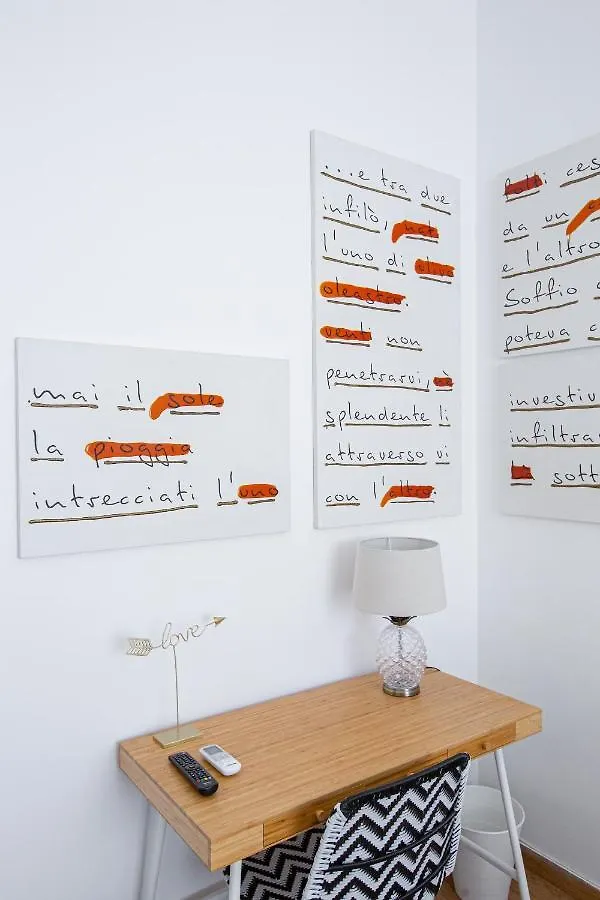 ...mai il sole
la pioggia
intrecciati l'uno
...e tra due
infilò, nat
l'uno di olivo
oleastro.
venti non
penetrarvi, è
splendente li
attraverso vi
con l'altro.
folti ces
da un
e l'altro
Soffio
poteva
investiv
infiltrar
sott
love